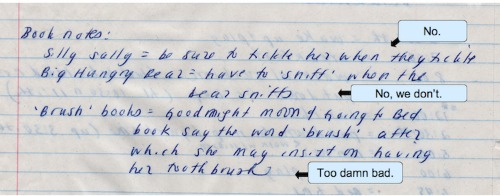 Book notes:
No.
Silly Sally = be sure to tickle her when they tickle
Big Hungry Bear = have to 'sniff' when the
bear sniffs
No, we don't.
'Brush' books = Goodnight Moon & Going to Bed
book say the word 'brush' after
which she may insist on having
her toothbrush
Too damn bad.